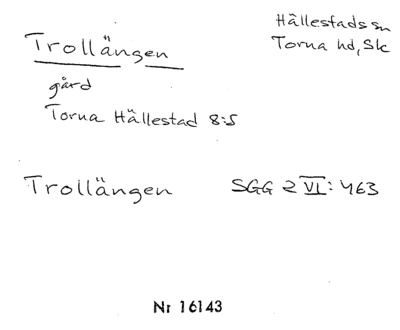 Hällestads sn
Trollängen
Torna hd, Sk
gård
Torna Hällestad 8:5
Trollängen SGG 2 VI: 463
Nr 16143